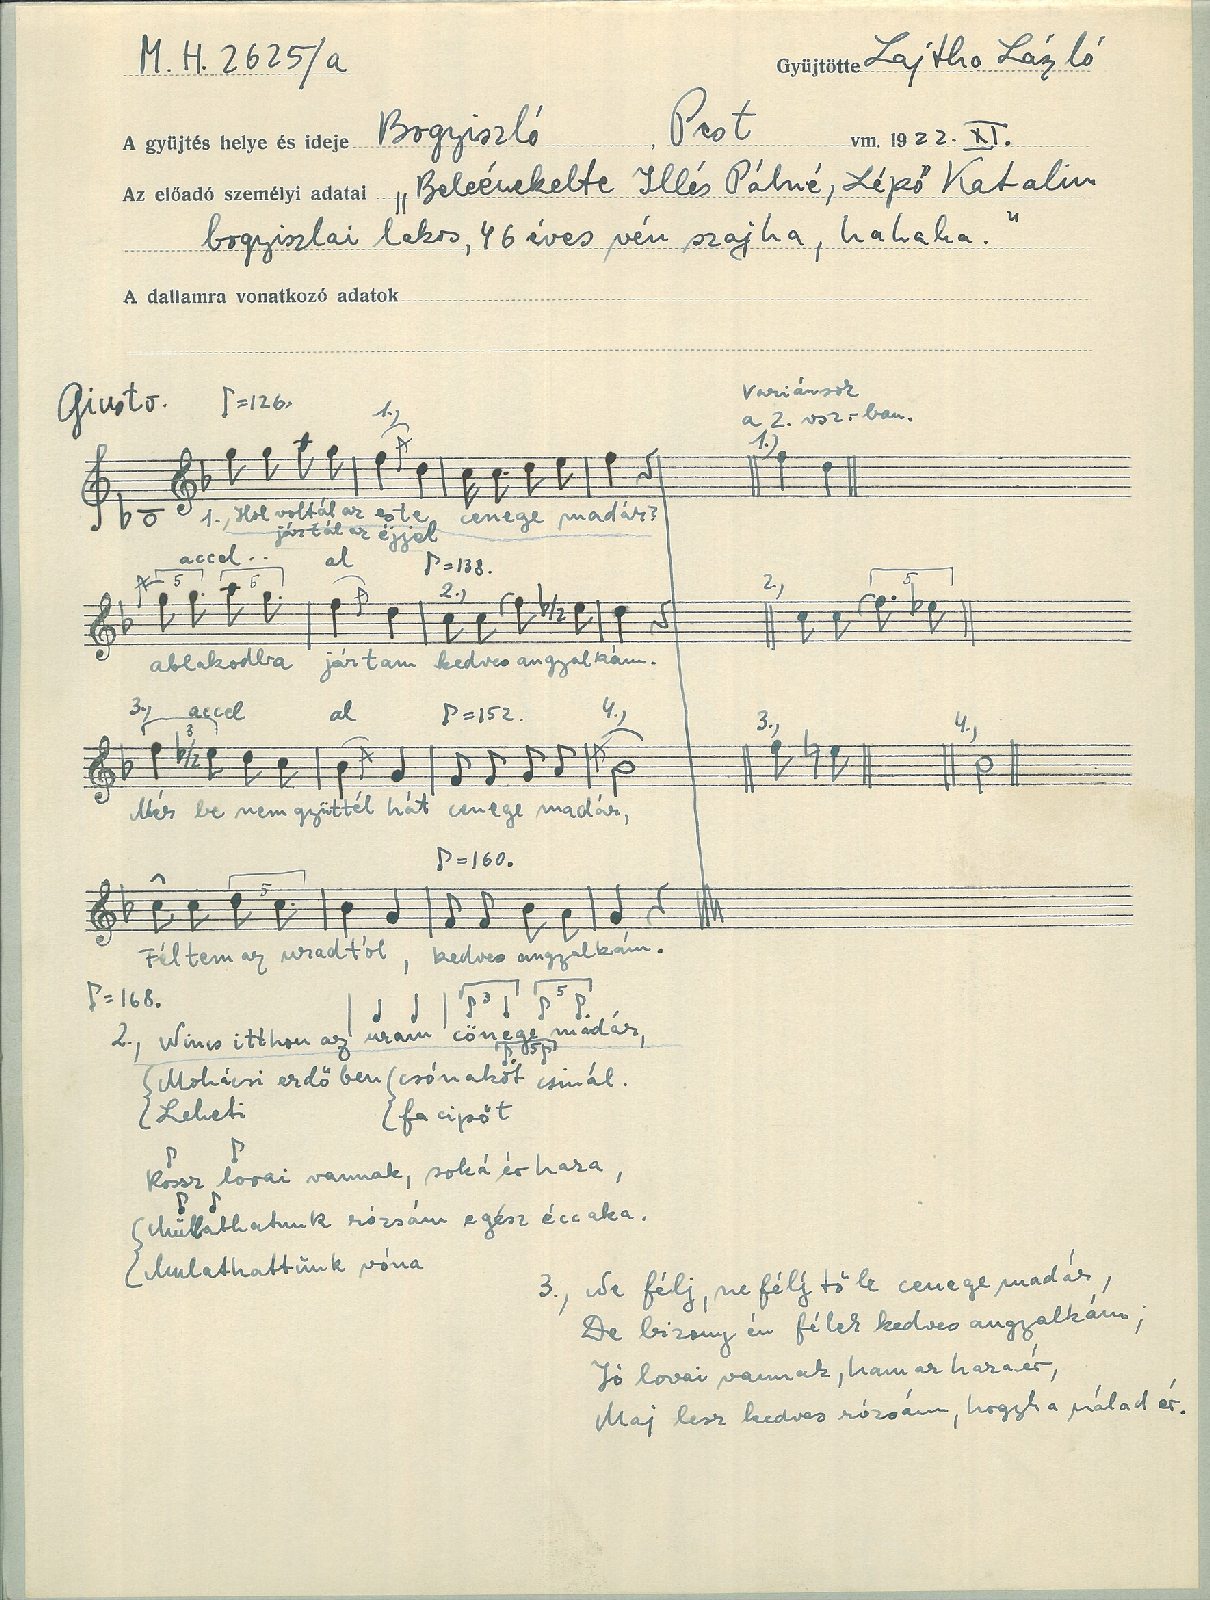 M. H. 2625/a
Gyüjtötte Lajtha László
A gyüjtés helye és ideje Bogyiszló, Pest vm. 1922. XI.
Az előadó személyi adatai „Beleénekelte Illés Pálné, Lépő Katalin
bogyiszlai lakos, 46 éves vén szajha, hahaha."
A dallamra vonatkozó adatok
Giusto. ♪=126.
Variánsok
a 2. vsz.-ban.
1.,
1.)
1., Hol voltál az este cenege madár?
jártál az éjjel
accel.. al ♪=138.
5 6 2., 2., 5
ablakodba jártam kedves angyalkám.
3., accel al ♪=152. 4., 3., 4.,
3
Mér be nem gyüttél hát cenege madár,
♪=160.
5
Féltem az uradtól, kedves angyalkám.
♪=168.
3 5
2., Nincs itthon az uram cönege madár,
5
Mohácsi erdőben csónakot csinál.
Leheti facipőt
Rossz lovai vannak, soká ér haza,
Mulathatunk rózsám egész éccaka.
Mulathattunk vóna
3., Ne félj, ne félj tőle cenege madár,
De bizony én félek kedves angyalkám;
Jó lovai vannak, hamar haza ér,
Maj lesz kedves rózsám, hogyha nálad ér.